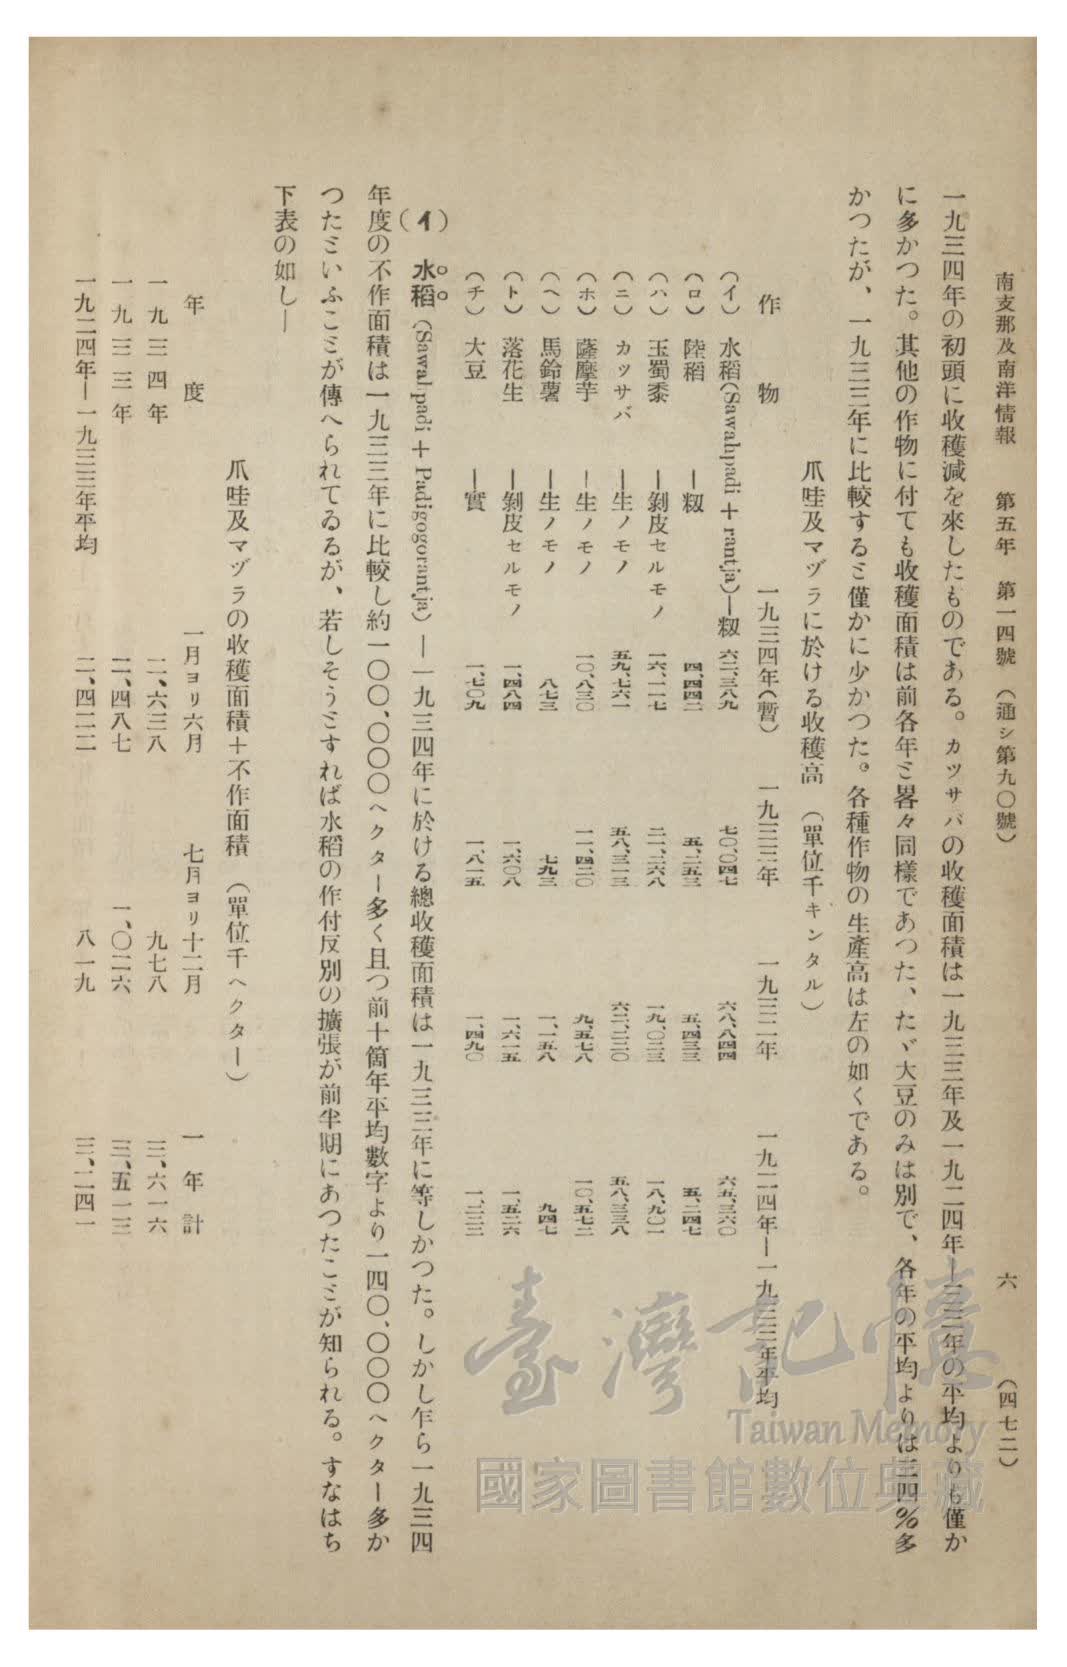 南支那及南洋情報　第五年　第一四號　（通シ第九〇號）　六　（四七二）
一九三四年の初頭に收穫減を來したものである。カツサバの收穫面積は一九三三年及一九二四年―三三年の平均よりも僅か
に多かつた。其他の作物に付ても收穫面積は前各年ミ畧々同樣であつた、たゞ大豆のみは別で、各年の平均よりは三四％多
かつたが、一九三三年に比較するミ僅かに少かつた。各種作物の生產高は左の如くである。
爪哇及マヅラに於ける收穫高　（單位千キンタル）
作物　一九三四年（暫）　一九三三年　一九三二年　一九二四年―一九三三年平均
（イ）　水稻（Sawahpadi＋rantja）―籾　六二、三八九　七〇、〇四七　六八、八四四　六五、三六〇
（ロ）　陸稻　―籾　四、四四二　五、二五三　五、四三三　五、二四七
（ハ）　玉蜀黍　―剝皮セルモノ　一六、一一七　二一、二六八　一九、〇二三　一八、九〇一
（ニ）　カツサバ　―生ノモノ　五九、七六一　五八、三一三　六二、二二〇　五八、三三八
（ホ）　薩摩芋　―生ノモノ　一〇、八三〇　一一、四二〇　九、五七八　一〇、五七二
（ヘ）　馬鈴薯　―生ノモノ　八七三　七九三　一、一五八　九四七
（ト）　落花生　―剝皮セルモノ　一、四八四　一、六〇八　一、六一五　一、五二六
（チ）　大豆　―實　一、七〇九　一、八一五　一、四九〇　一、二二三
（イ）　水稻（Sawahpadi＋Padigogorantja）―一九三四年に於ける總收穫面積は一九三三年に等しかつた。しかし乍ら一九三四
年度の不作面積は一九三三年に比較し約一〇〇、〇〇〇ヘクター多く且つ前十箇年平均數字より一四〇、〇〇〇ヘクター多か
つたミいふこミが傳へられてゐるが、若しそうミすれば水稻の作付反別の擴張が前半期にあつたこミが知られる。すなはち
下表の如し―
爪哇及マヅラの收穫面積＋不作面積　（單位千ヘクター）
年度　一月ヨリ六月　七月ヨリ十二月　一年計
一九三四年　二、六三八　九七八　三、六一六
一九三三年　二、四八七　一、〇二六　三、五一三
一九二四年―一九三三年平均　二、四二二　八一九　三、二四一
臺灣記憶
Taiwan Memory
國家圖書館數位典藏